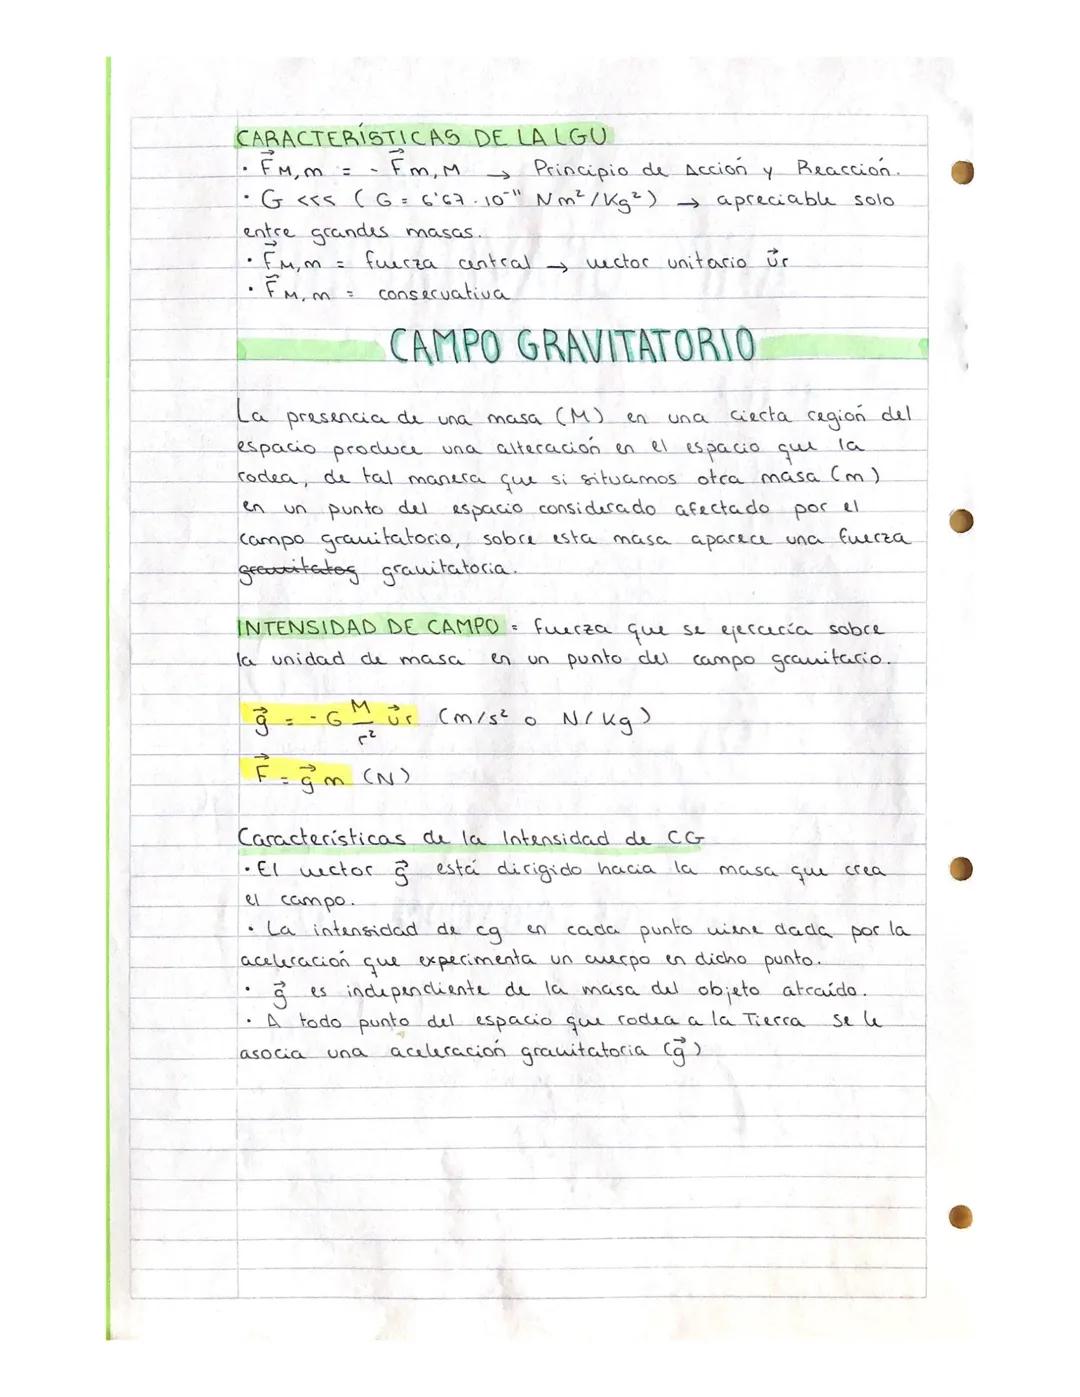 CARACTERÍSTICAS DE LA LGU
· F⃗M,m = - F⃗m,M → Principio de Acción y Reacción.
· G <<< (G = 6'67·10⁻¹¹ Nm²/Kg²) → apreciable solo
entre grandes masas.
· F⃗M,m = fuerza central → vector unitario u⃗r
· F⃗M,m = conservativa
CAMPO GRAVITATORIO
La presencia de una masa (M) en una cierta región del
espacio produce una alteración en el espacio que la
rodea, de tal manera que si situamos otra masa (m)
en un punto del espacio considerado afectado por el
campo gravitatorio, sobre esta masa aparece una fuerza
gravitatoria.
INTENSIDAD DE CAMPO = fuerza que se ejercería sobre
la unidad de masa en un punto del campo gravitario.
g⃗ = -G M/r² u⃗r (m/s² o N/Kg)
F⃗ = g⃗ m (N)
Características de la Intensidad de CG
· El vector g⃗ está dirigido hacia la masa que crea
el campo.
· La intensidad de cg en cada punto viene dada por la
aceleración que experimenta un cuerpo en dicho punto.
· g⃗ es independiente de la masa del objeto atraído.
· A todo punto del espacio que rodea a la Tierra se le
asocia una aceleración gravitatoria (g⃗)